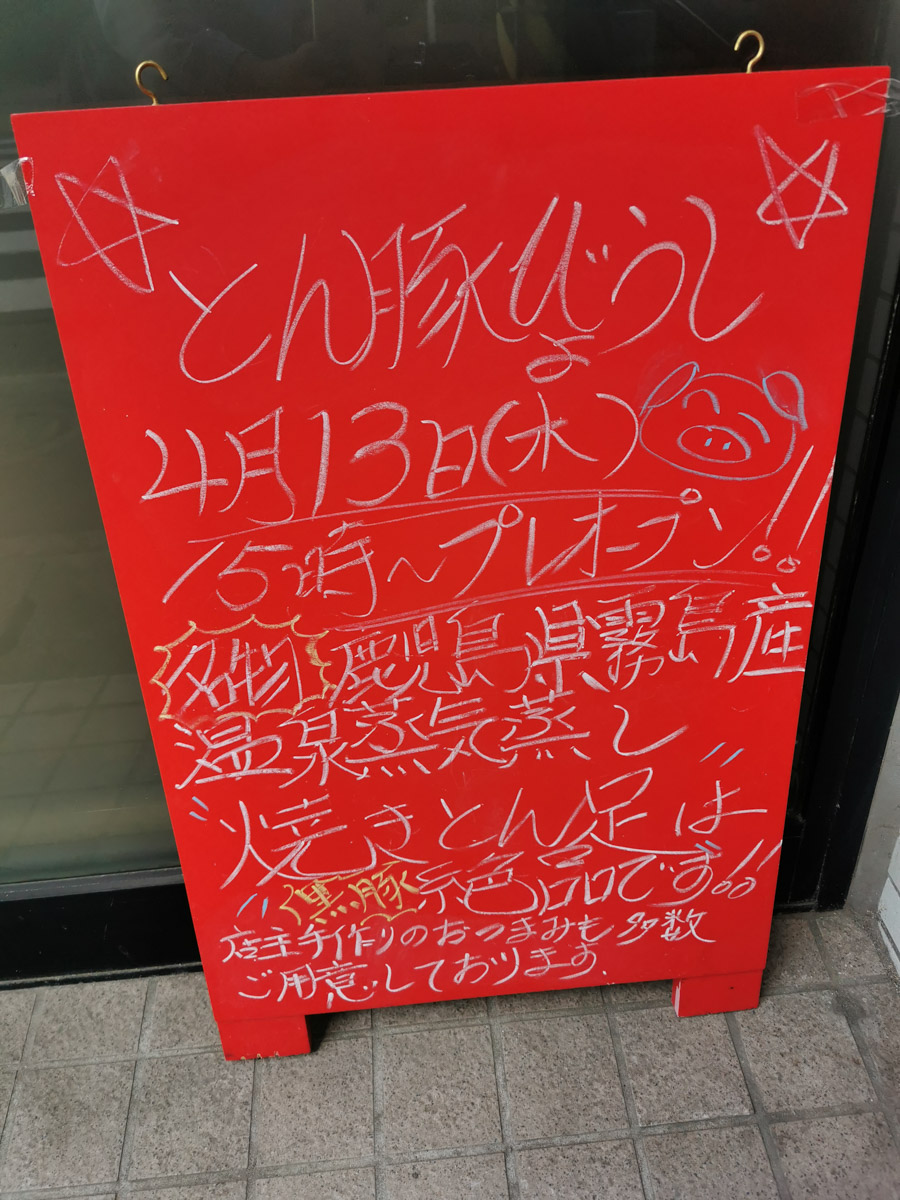 とん豚びょうし
4月13日(水)
15時〜プレオープン!!
名物 鹿児島県霧島産
温泉蒸気蒸し
"焼きとん足は"
(黒豚) 絶品です!!
店主手作りのおつまみも多数
ご用意しております.